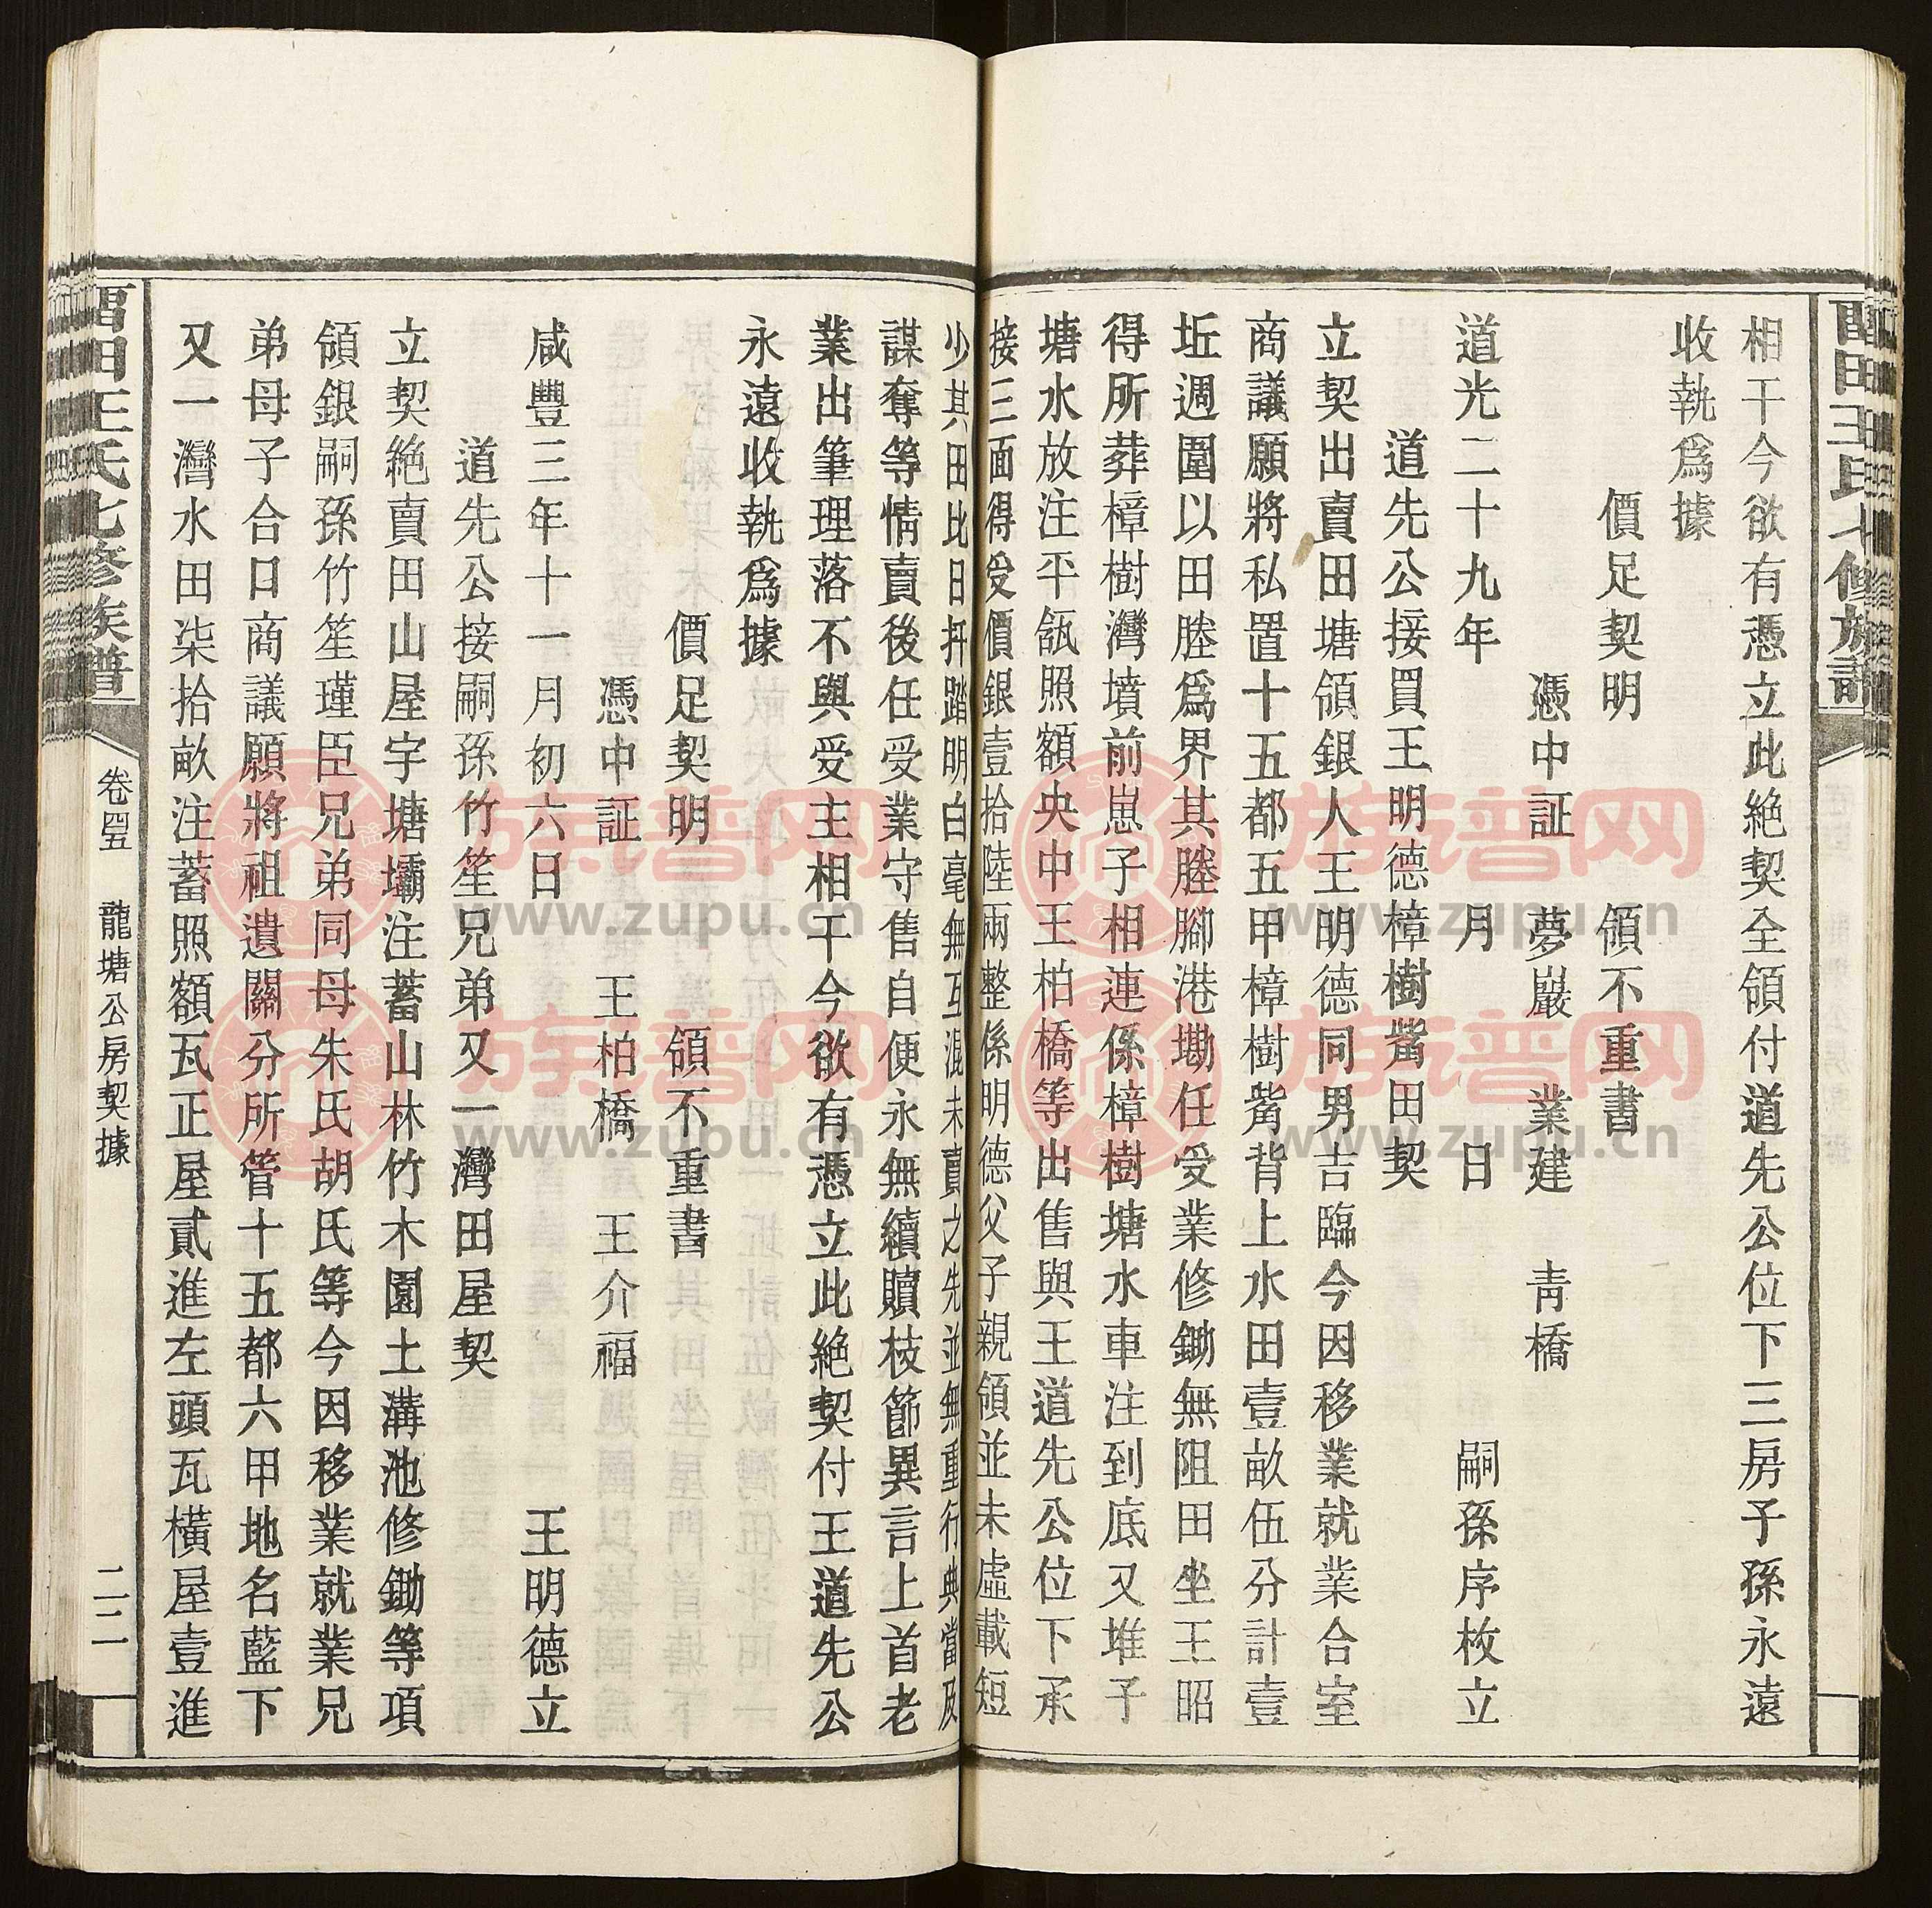 相干今欲有憑立此絶契全領付道先公位下三房子孫永遠
收執爲據
價足契明　領不重書
憑中証　夢巖　業建　青橋
道光二十九年　月　日　嗣孫序枚立
道先公接買王明德樟樹觜田契
立契出賣田塘領銀人王明德同男吉臨今因移業就業合室
商議願將私置十五都五甲樟樹觜背上水田壹畝伍分計壹
坵週圍以田塍爲界其塍腳港墈任受業修鋤無阻田坐王昭
得所葬樟樹灣墳前崽子相連係樟樹塘水車注到底又堆子
塘水放注平瓴照額央中王柏橋等出售與王道先公位下承
接三面得受價銀壹拾陸兩整係明德父子親領並未虛載短
少其田比日扦踏明白毫無互混未賣之先並無重行典當及
謀奪等情賣後任受業守售自便永無續贖枝節異言上首老
業出筆理落不與受主相干今欲有憑立此絶契付王道先公
永遠收執爲據
價足契明　領不重書
憑中証　王柏橋　王介福
咸豐三年十一月初六日　王明德立
道先公接嗣孫竹笙兄弟又一灣田屋契
立契絶賣田山屋宇塘壩注蓄山林竹木園土溝池修鋤等項
領銀嗣孫竹笙瑾臣兄弟同母朱氏胡氏等今因移業就業兄
弟母子合口商議願將祖遺關分所管十五都六甲地名藍下
又一灣水田柒拾畝注蓄照額瓦正屋貳進左頭瓦橫屋壹進
留田王氏七修族譜
卷四五　龍塘公房契據
二二
族譜网
www.zupu.cn
族譜网
www.zupu.cn
族譜网
www.zupu.cn
族譜网
www.zupu.cn